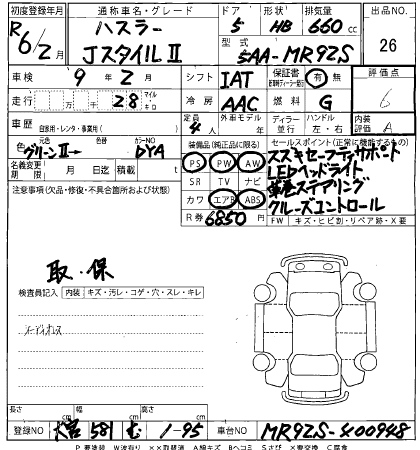 初度登録年月 通称車名・グレード ドア 形状 排気量 出品No.
R6/2月 ハスラー JスタイルⅡ 5 HB 660cc 26
型式 5AA-MR92S
車検 9年2月 シフト IAT 保証書 有・無 評価点 6
走行 28 マイル キロ 冷房 AAC 燃料 G
車歴 自家用・レンタ・事業用( ) 定員 4人 外車モデル 年 ディーラー 並行 ハンドル 左・右 内装評価 A
色 元色 グリーンⅡ→ 色替 カラーNo DYA
装備品(純正品に限る) セールスポイント(正常に機能するもの)
名義変更期限 月 日迄 積載 t
PS PW AW スズキセーフティサポート
注意事項(欠品・修復・不具合箇所および状態)
SR TV ナビ LEDヘッドライト
カワ エアB ABS 革巻ステアリング
R券 6850円 クルーズコントロール
FW キズ・ヒビ割・リペア跡・X要
取・保
検査員記入 内装 キズ・汚レ・コゲ・穴・スレ・キレ
オーディオレス
長さ cm 幅 cm 高さ cm
登録No 581 む 1-95 車台No MR92S-400948
P.要塗装 W波有り ××取替済 A線キズ Bヘコミ Sさび X要交換 C腐食